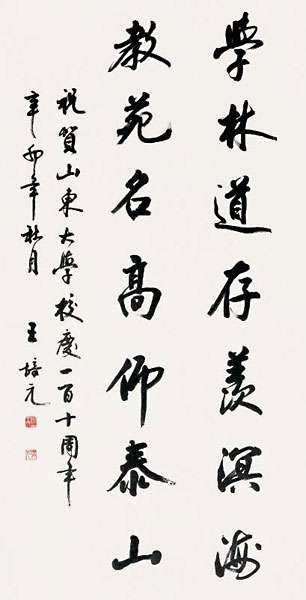 學林道存羨溟海
教苑名高仰泰山
祝賀山東大學校慶一百十周年
辛卯年杜月
王培元